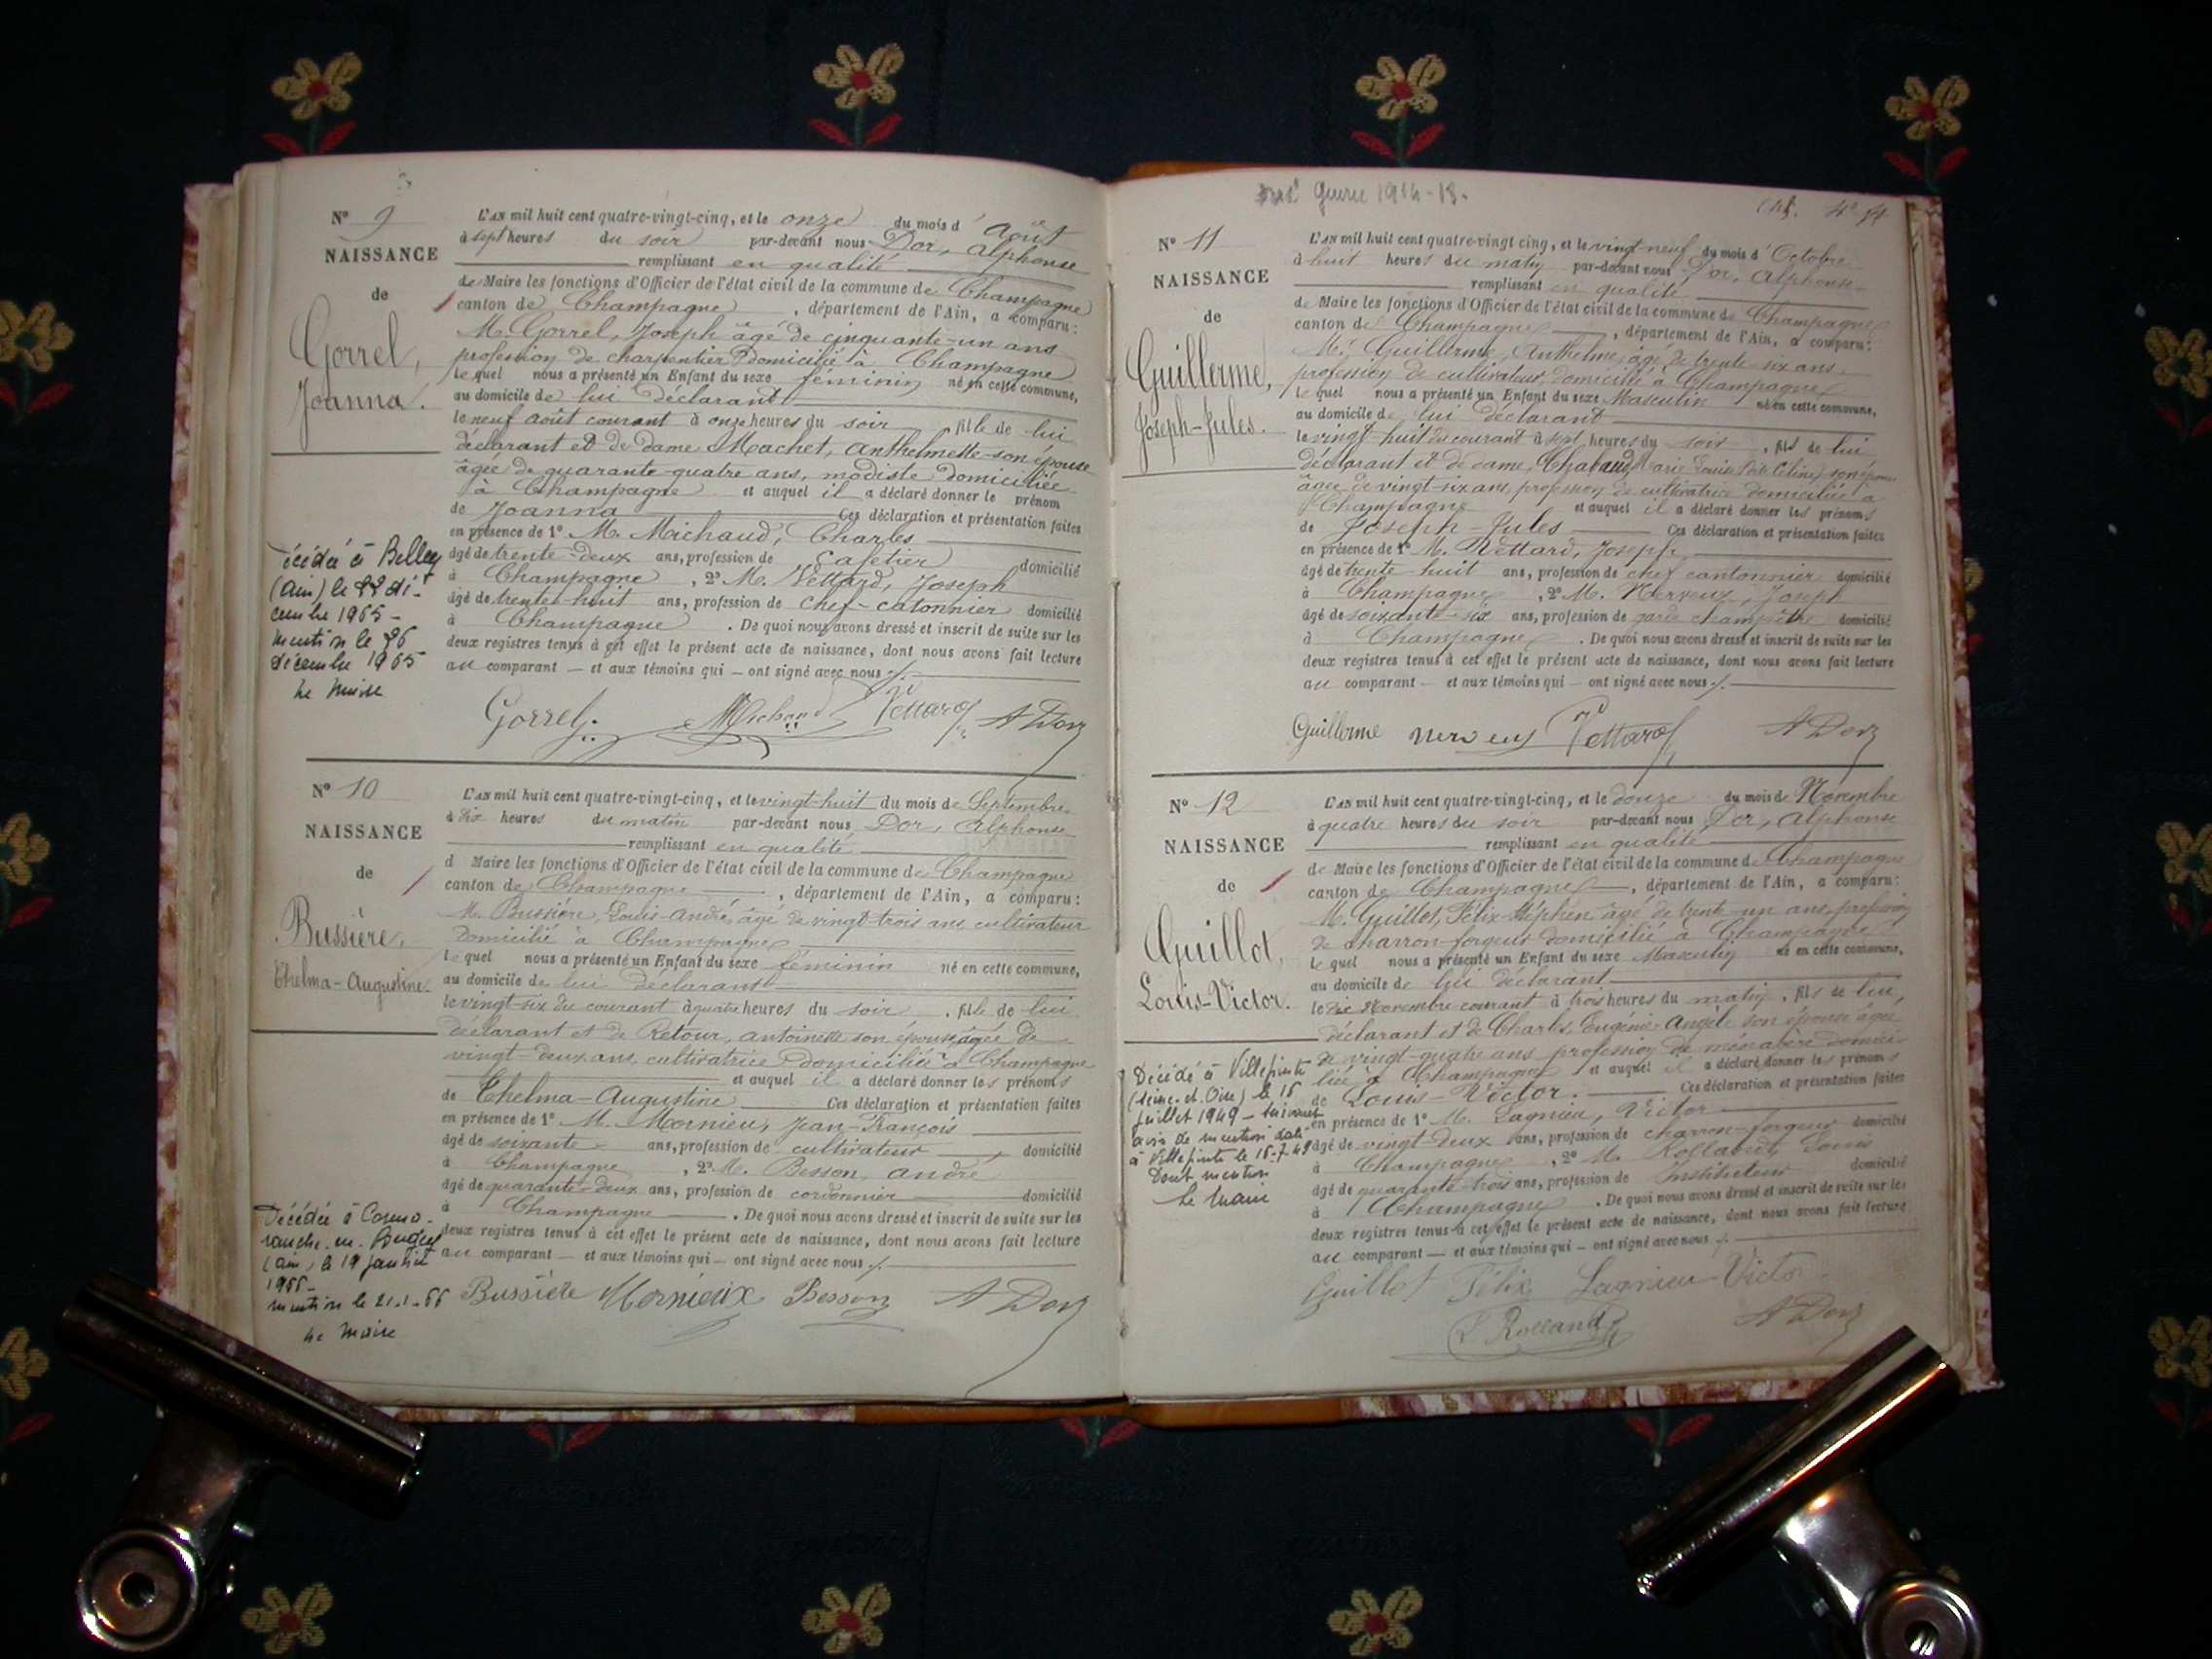 Nº 9
NAISSANCE
de
Gorrel,
Joanna.
L'AN mil huit cent quatre-vingt-cinq, et le onze du mois d'août
à sept heures du soir par-devant nous Dor, Alphonse
remplissant en qualité
de Maire les fonctions d'Officier de l'état civil de la commune de Champagne
canton de Champagne, département de l'Ain, a comparu:
M. Gorrel, Joseph âgé de cinquante-un ans
profession de charpentier domicilié à Champagne
lequel nous a présenté un Enfant du sexe féminin né en cette commune,
au domicile de lui déclarant
le neuf août courant à onze heures du soir, fille de lui
déclarant et de dame Machet, Anthelmette son épouse
âgée de quarante-quatre ans, modiste domiciliée
à Champagne et auquel il a déclaré donner le prénom
de Joanna Ces déclaration et présentation faites
en présence de 1º M. Michaud, Charles
âgé de trente-deux ans, profession de cafetier domicilié
à Champagne, 2º M. Vettard, Joseph
âgé de trente-huit ans, profession de chef-catonnier domicilié
à Champagne. De quoi nous avons dressé et inscrit de suite sur les
deux registres tenus à cet effet le présent acte de naissance, dont nous avons fait lecture
au comparant — et aux témoins qui — ont signé avec nous ./.
Gorrel Michaud Vettard A Dor
Décédée à Belley
(Ain) le 22 dé-
cembre 1965 -
mention le 26
décembre 1965
Le Maire
Nº 10
NAISSANCE
de
Bussière,
Thelma-Augustine.
L'AN mil huit cent quatre-vingt-cinq, et le vingt-huit du mois de Septembre
à dix heures du matin par-devant nous Dor, Alphonse
remplissant en qualité
d Maire les fonctions d'Officier de l'état civil de la commune de Champagne
canton de Champagne, département de l'Ain, a comparu:
M. Bussière, Louis-André, âgé de vingt-trois ans cultivateur
domicilié à Champagne
lequel nous a présenté un Enfant du sexe féminin né en cette commune,
au domicile de lui déclarant
le vingt-six du courant à quatre heures du soir, fille de lui
déclarant et de Retour, Antoinette son épouse, âgée de
vingt-deux ans, cultivatrice domiciliée à Champagne
et auquel il a déclaré donner les prénoms
de Thelma-Augustine Ces déclaration et présentation faites
en présence de 1º M. Mornieu, Jean-François
âgé de soixante ans, profession de cultivateur domicilié
à Champagne, 2º M. Besson, André
âgé de quarante-deux ans, profession de cordonnier domicilié
à Champagne. De quoi nous avons dressé et inscrit de suite sur les
deux registres tenus à cet effet le présent acte de naissance, dont nous avons fait lecture
au comparant — et aux témoins qui — ont signé avec nous ./.
Bussière Mornieux Besson A Dor
Décédée à Cormo-
ranche-en-Bugey
(Ain) le 19 janvier
1966 -
mention le 21-1-66
Le Maire
Guerre 1914-18.
Nº 11
NAISSANCE
de
Guillerme,
Joseph-Jules.
L'AN mil huit cent quatre-vingt cinq, et le vingt-neuf du mois d'Octobre
à huit heures du matin par-devant nous Dor, Alphonse
remplissant en qualité
de Maire les fonctions d'Officier de l'état civil de la commune de Champagne
canton de Champagne, département de l'Ain, a comparu:
M. Guillerme, Anthelme, âgé de trente-six ans
profession de cultivateur, domicilié à Champagne
lequel nous a présenté un Enfant du sexe Masculin né en cette commune,
au domicile de lui déclarant
le vingt-huit du courant à sept heures du soir, fils de lui
déclarant et de dame, Chabaud, Marie Louise Céline, son épouse
âgée de vingt-six ans, profession de cultivatrice domiciliée à
Champagne et auquel il a déclaré donner les prénoms
de Joseph-Jules Ces déclaration et présentation faites
en présence de 1º M. Vettard, Joseph
âgé de trente huit ans, profession de chef cantonnier domicilié
à Champagne, 2º M. Nerveux, Joseph
âgé de soixante-six ans, profession de garde champêtre domicilié
à Champagne. De quoi nous avons dressé et inscrit de suite sur les
deux registres tenus à cet effet le présent acte de naissance, dont nous avons fait lecture
au comparant — et aux témoins qui — ont signé avec nous ./.
Guillerme Nerveux Vettard A Dor
Nº 12
NAISSANCE
de
Guillot,
Louis-Victor.
L'AN mil huit cent quatre-vingt-cinq, et le douze du mois de Novembre
à quatre heures du soir par-devant nous Dor, Alphonse
remplissant en qualité
de Maire les fonctions d'Officier de l'état civil de la commune de Champagne
canton de Champagne, département de l'Ain, a comparu:
M. Guillot, Félix-Stéphen âgé de trente-un ans, profession
de charron-forgeur domicilié à Champagne
lequel nous a présenté un Enfant du sexe Masculin né en cette commune,
au domicile de lui déclarant
le dix Novembre courant à trois heures du matin, fils de lui,
déclarant et de Charles, Eugénie-Angèle son épouse âgée
de vingt-quatre ans profession de ménagère domici-
liée à Champagne et auquel il a déclaré donner les prénoms
de Louis-Victor. Ces déclaration et présentation faites
en présence de 1º M. Lagnieu, Victor
âgé de vingt-deux ans, profession de charron-forgeur domicilié
à Champagne, 2º M. Louis
âgé de quarante-trois ans, profession de Instituteur domicilié
à Champagne. De quoi nous avons dressé et inscrit de suite sur les
deux registres tenus à cet effet le présent acte de naissance, dont nous avons fait lecture
au comparant — et aux témoins qui — ont signé avec nous ./.
Guillot Félix Lagnieu Victor
L Rolland A Dor
Décédé à Villepinte
(Seine-et-Oise) le 15
juillet 1949 - suivant
avis de mention daté
à Villepinte le 16-7-49
Dont mention
Le Maire